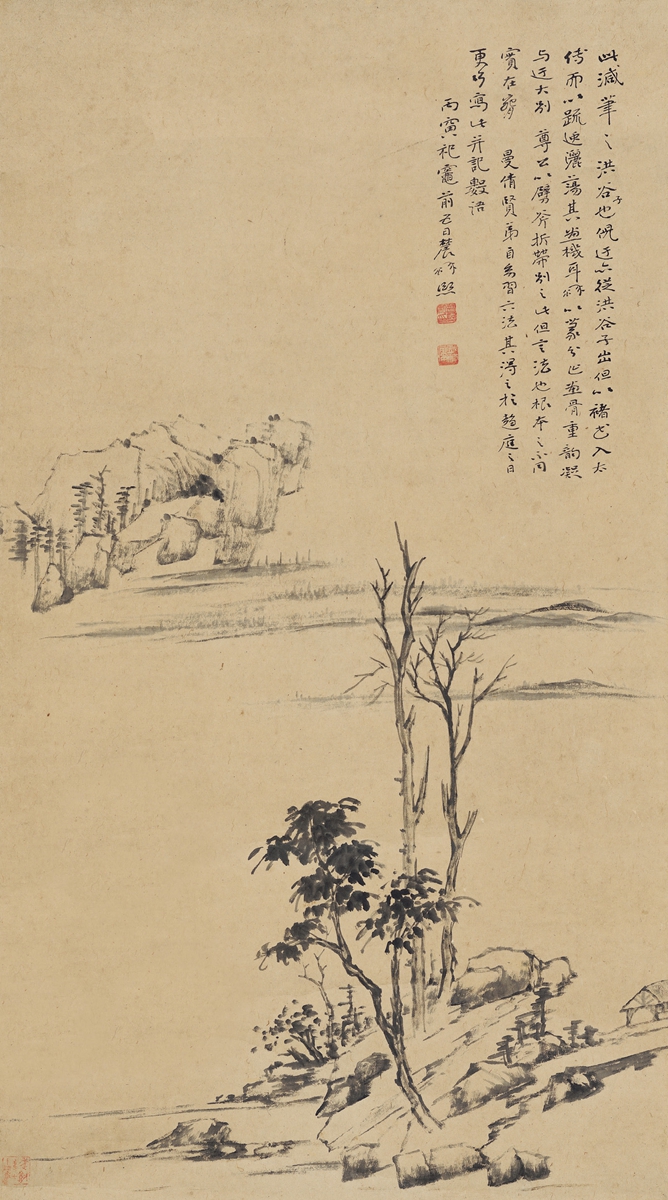 此減筆之洪谷子也倪迂亦從洪谷子出但以褚書入太
傅而以疏逸灑蕩其機耳髯以篆分作畫骨重韵凝
与迂大別尊公以劈斧折帶別之此但言法也根本之不同
實在曼倩賢弟自習六法其得之於趨庭之日
更多寫此并記數語
丙寅祀竈前五日農髯熙